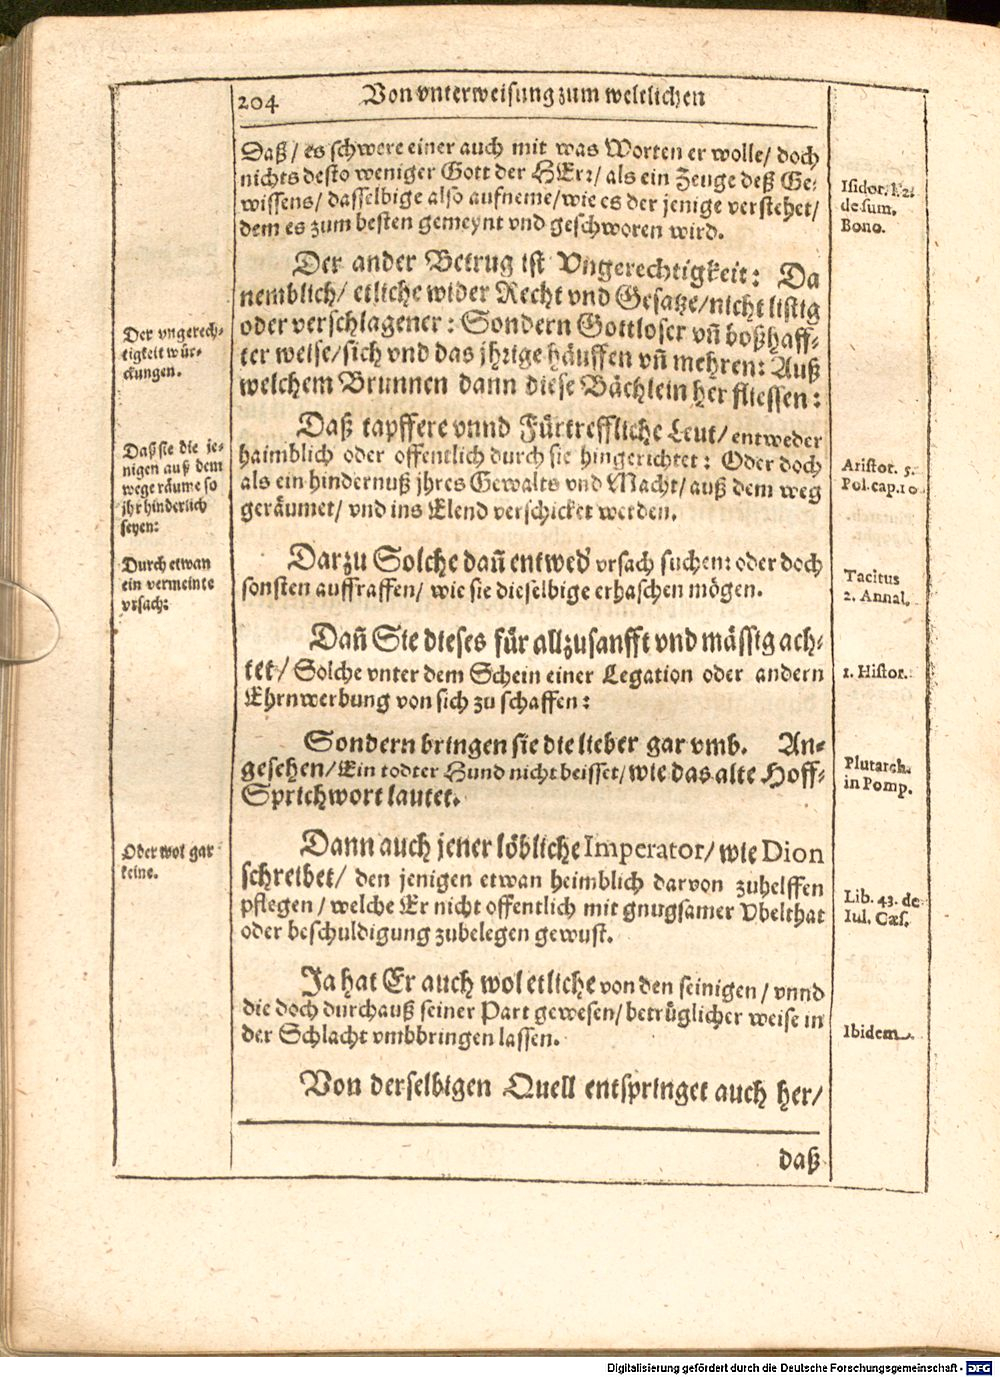 204 Von vnterweisung zum weltlichen
Daß / es schwere einer auch mit was Worten er wolle / doch
nichts desto weniger Gott der HErr / als ein Zeuge deß Ge-
wissens / dasselbige also aufneme / wie es der jenige verstehet /
dem es zum besten gemeynt vnd geschworen wird.
Isidor. l. 2.
de sum.
Bono.
Der ander Betrug ist Vngerechtigkeit: Da
nemblich / etliche wider Recht vnd Gesatze / nicht listig
oder verschlagener: Sondern Gottloser vn̄ boßhaff-
ter weise / sich vnd das jhrige häuffen vn̄ mehren: Auß
welchem Brunnen dann diese Bächlein her fliessen:
Der vngerech-
tigkeit wür-
ckungen.
Daß tapffere vnnd Fürtreffliche Leut / entweder
haimblich oder offentlich durch sie hingerichtet: Oder doch
als ein hindernuß jhres Gewalts vnd Macht / auß dem weg
geräumet / vnd ins Elend verschicket werden.
Daß sie die je-
nigen auß dem
wege räume so
jhr hinderlich
seyen:
Aristot. 5.
Pol. cap. 10
Darzu Solche dan̄ entwed' vrsach suchen: oder doch
sonsten auffraffen / wie sie dieselbige erhaschen mögen.
Durch etwan
ein vermeinte
vrsach:
Tacitus
2. Annal.
Dan̄ Sie dieses für allzusanfft vnd mässig ach-
tet / Solche vnter dem Schein einer Legation oder andern
Ehrnwerbung von sich zu schaffen:
1. Histor.
Sondern bringen sie die lieber gar vmb. An-
gesehen / Ein todter Hund nicht beisset / wie das alte Hoff-
Sprichwort lautet.
Plutarch.
in Pomp.
Dann auch jener löbliche Imperator / wie Dion
schreibet / den jenigen etwan heimblich darvon zuhelffen
pflegen / welche Er nicht offentlich mit gnugsamer Vbelthat
oder beschuldigung zubelegen gewust.
Oder wol gar
keine.
Lib. 43. de
Iul. Cæs.
Ja hat Er auch wol etliche von den seinigen / vnnd
die doch durchauß seiner Part gewesen / betrüglicher weise in
der Schlacht vmbbringen lassen.
Ibidem.
Von derselbigen Quell entspringet auch her /
daß
Digitalisierung gefördert durch die Deutsche Forschungsgemeinschaft - DFG